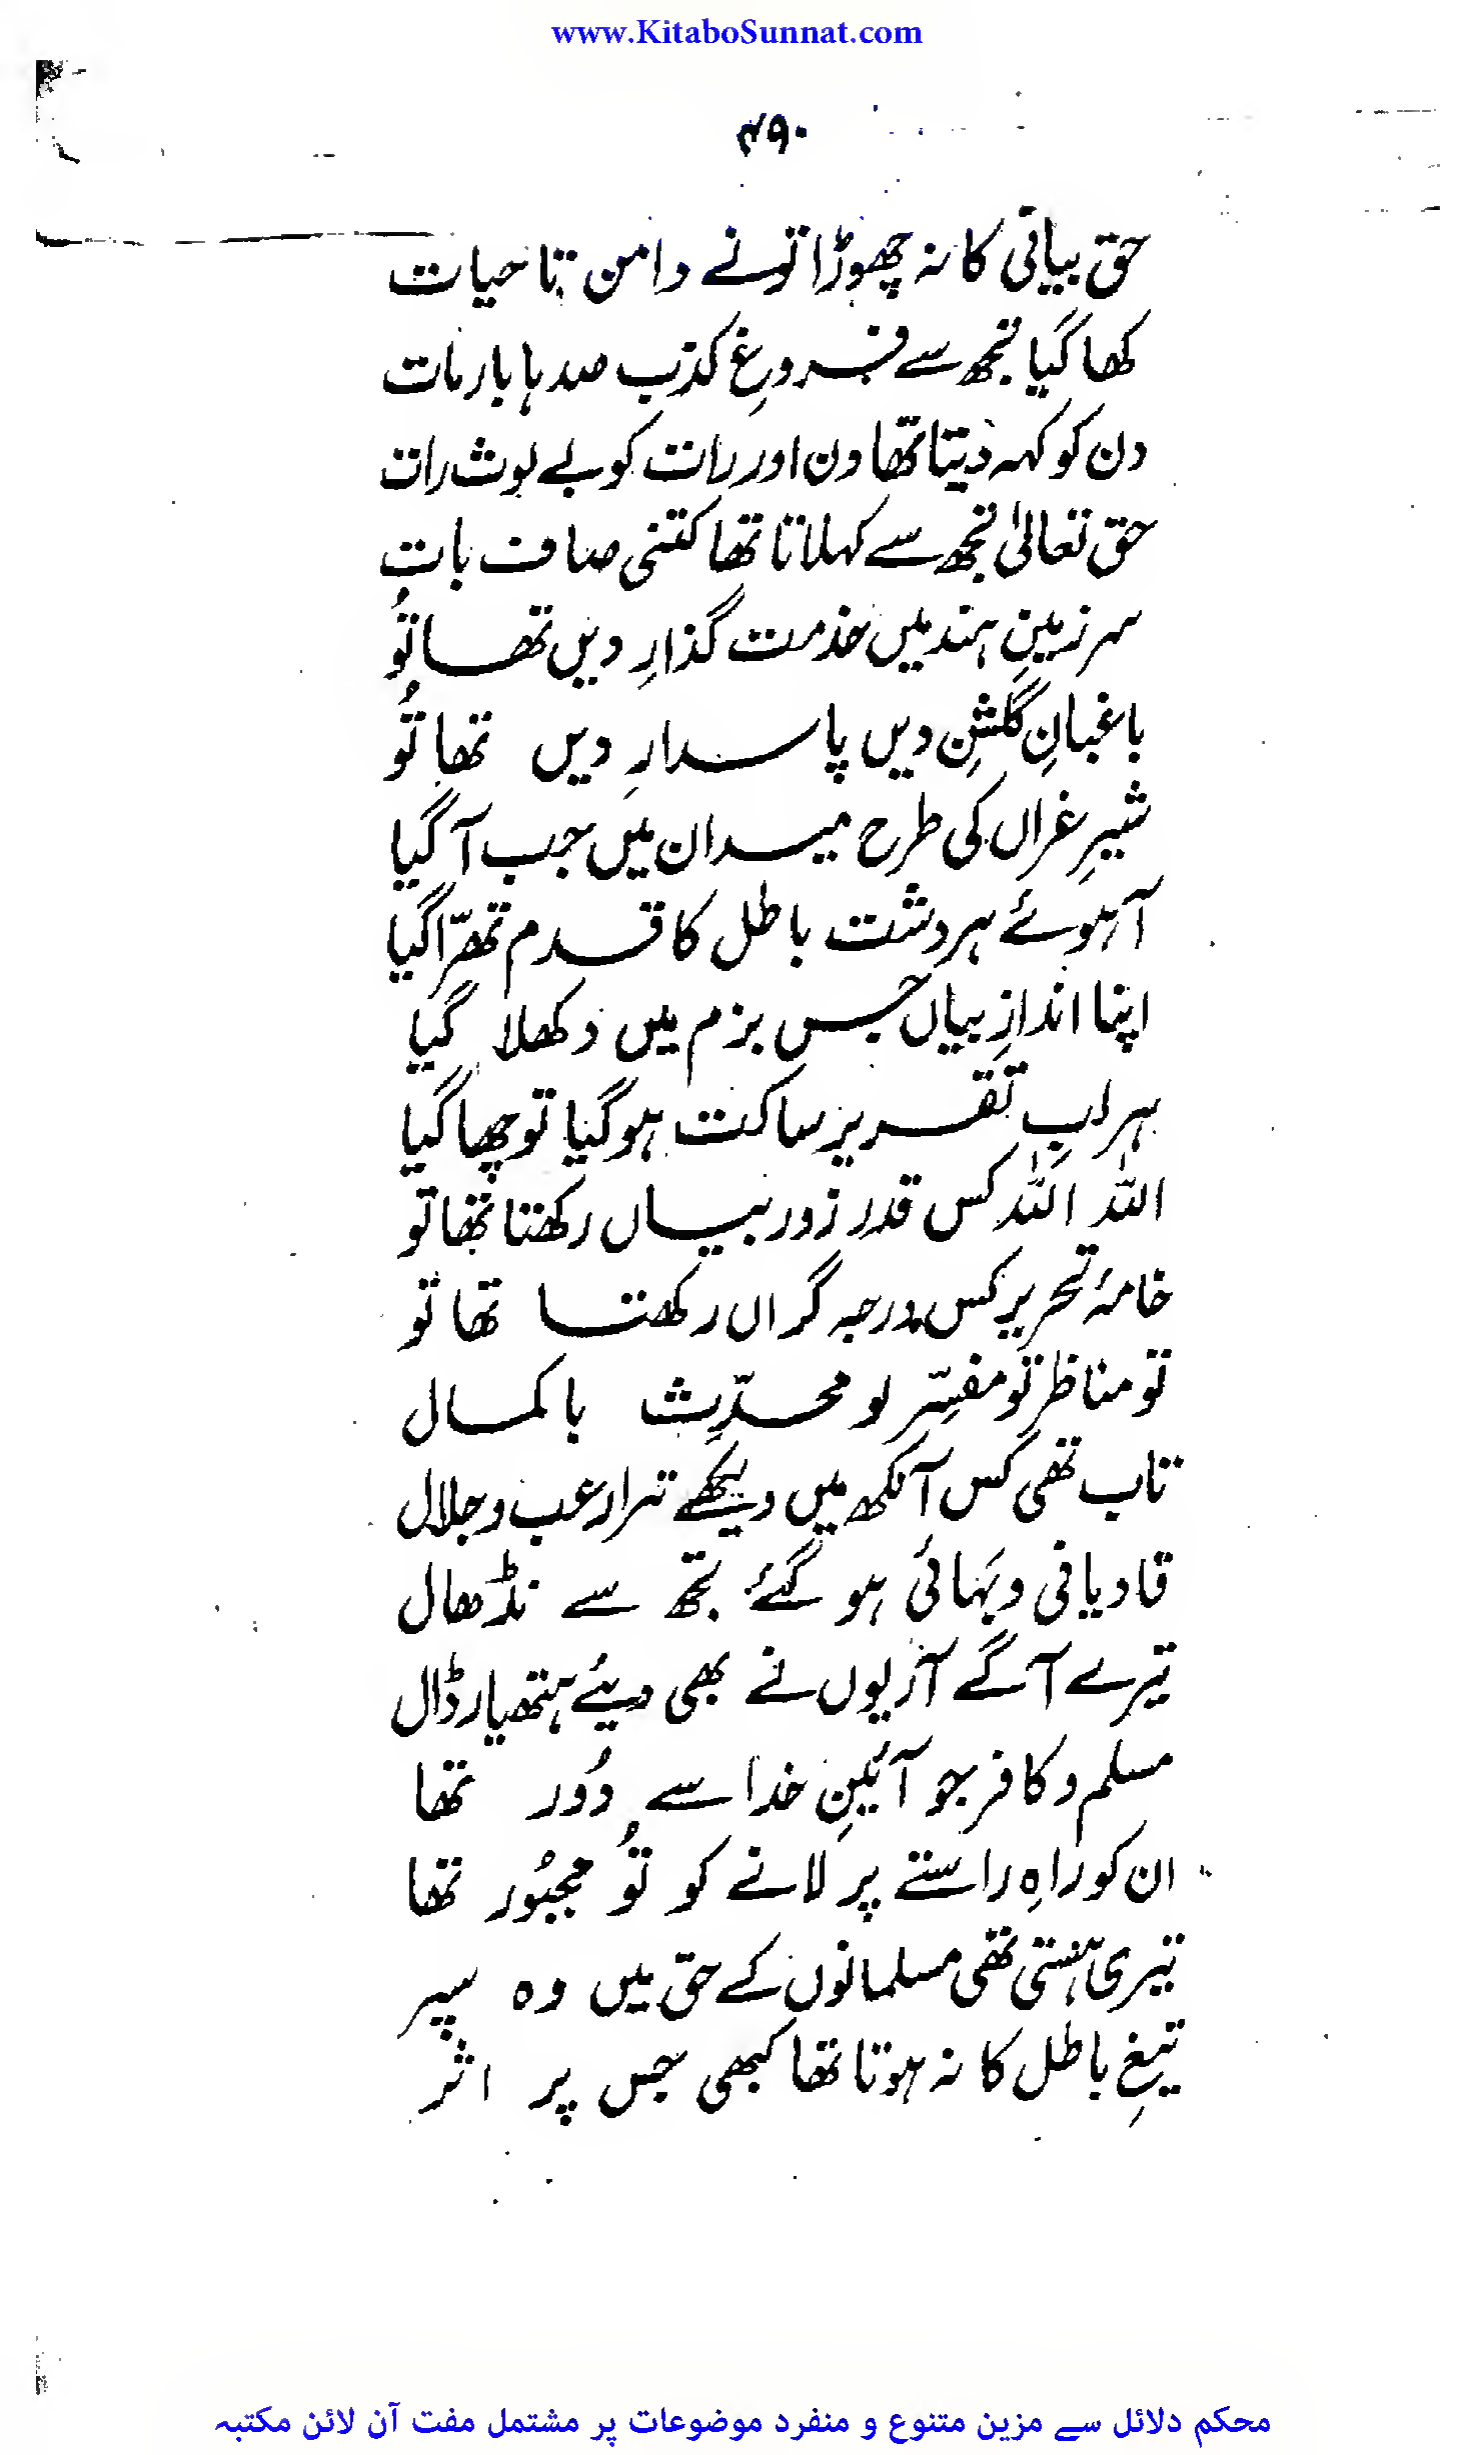 www.KitaboSunnat.com
۴۹۰
حق بیانی کا نہ چھوڑا تو نے دامن تا حیات
کھا گیا تجھ سے فروغِ کذب صدہا بار مات
دن کو کہہ دیتا تھا دن اور رات کو بے لوث رات
حق تعالیٰ تجھ سے کہلاتا تھا کتنی صاف بات
سرزمینِ ہند میں خدمت گذارِ دیں تھا تُو
باغبانِ گلشنِ دیں پاسدارِ دیں تھا تُو
شیرِ غراں کی طرح میدان میں جب آ گیا
آہوئے ہر دشت باطل کا قدم تھرّا گیا
اپنا اندازِ بیاں جس بزم میں دکھلا گیا
ہر لبِ تقریر ساکت ہو گیا تو چھا گیا
اللہ اللہ کس قدر زور بیاں رکھتا تھا تو
خامۂ تحریر کس درجہ گراں رکھتا تھا تو
تو مناظر تو مفسِّر تو محدِّث باکمال
تاب تھی کس آنکھ میں دیکھے ترا رعب و جلال
قادیانی و بہائی ہو گئے تجھ سے نڈھال
تیرے آگے آریوں نے بھی دیئے ہتھیار ڈال
مسلم و کافر جو آئینِ خدا سے دُور تھا
ان کو راہِ راستے پر لانے کو تُو مجبُور تھا
تیری ہستی تھی مسلمانوں کے حق میں وہ سپر
تیغِ باطل کا نہ ہوتا تھا کبھی جس پر اثر
محکم دلائل سے مزین متنوع و منفرد موضوعات پر مشتمل مفت آن لائن مکتبہ